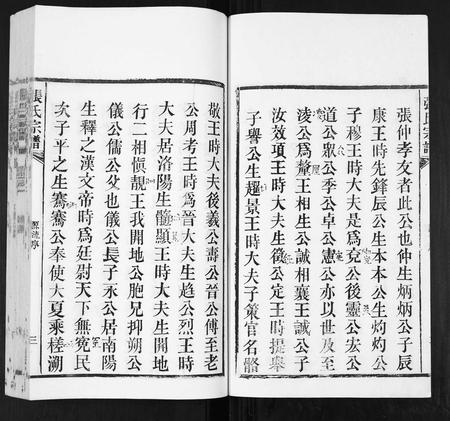 張仲孝友者此公也仲生炳炳公子辰
康王時先鋒辰公生本本公生灼灼公
子穆王時大夫是爲兗公後靈公宏公
道公眾公季公卓公憲公亦以世及至
淩公爲釐王相生公誠相襄王誠公子
汝效項王時大夫生徵公定王時提舉
子譽公生趯景王時大夫子策官名骼
張氏宗譜
敬王時大夫後義公壽公晉公傅至老
公周考王時爲晉大夫生趋公烈王時
大夫居洛陽生髓顯王時大夫生開地
行二相愼靚王我開地公胞兄抑朔公
儀公儒公㕛也儀公長子永公居南陽
生釋之漢文帝時爲廷尉天下無冤民
次子平之生騫騫公奉使大夏乘槎溯
張氏宗譜
源流序
三